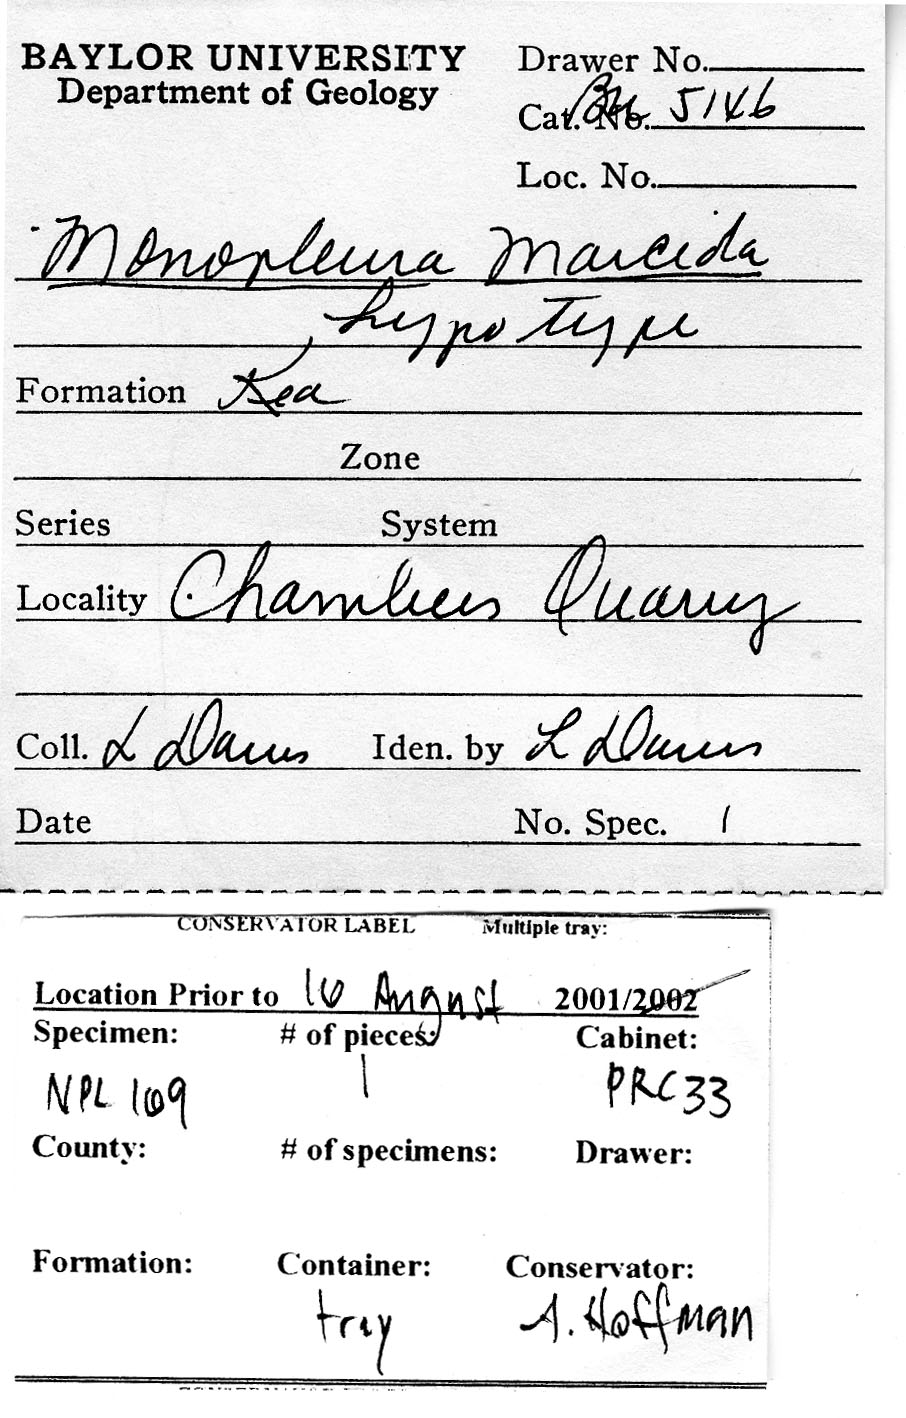 BAYLOR UNIVERSITY
Department of Geology
Drawer No.
Cat. No. BU 5146
Loc. No.
Monopleura marcida
, hypotype
Formation Kea
Zone
Series System
Locality Chambers Quarry
Coll. L Davis Iden. by L Davis
Date No. Spec. 1
CONSERVATOR LABEL Multiple tray:
Location Prior to 16 August 2001/2002
Specimen: # of pieces: Cabinet:
NPL 169 1 PRC33
County: # of specimens: Drawer:
Formation: Container: Conservator:
tray A. Hoffman